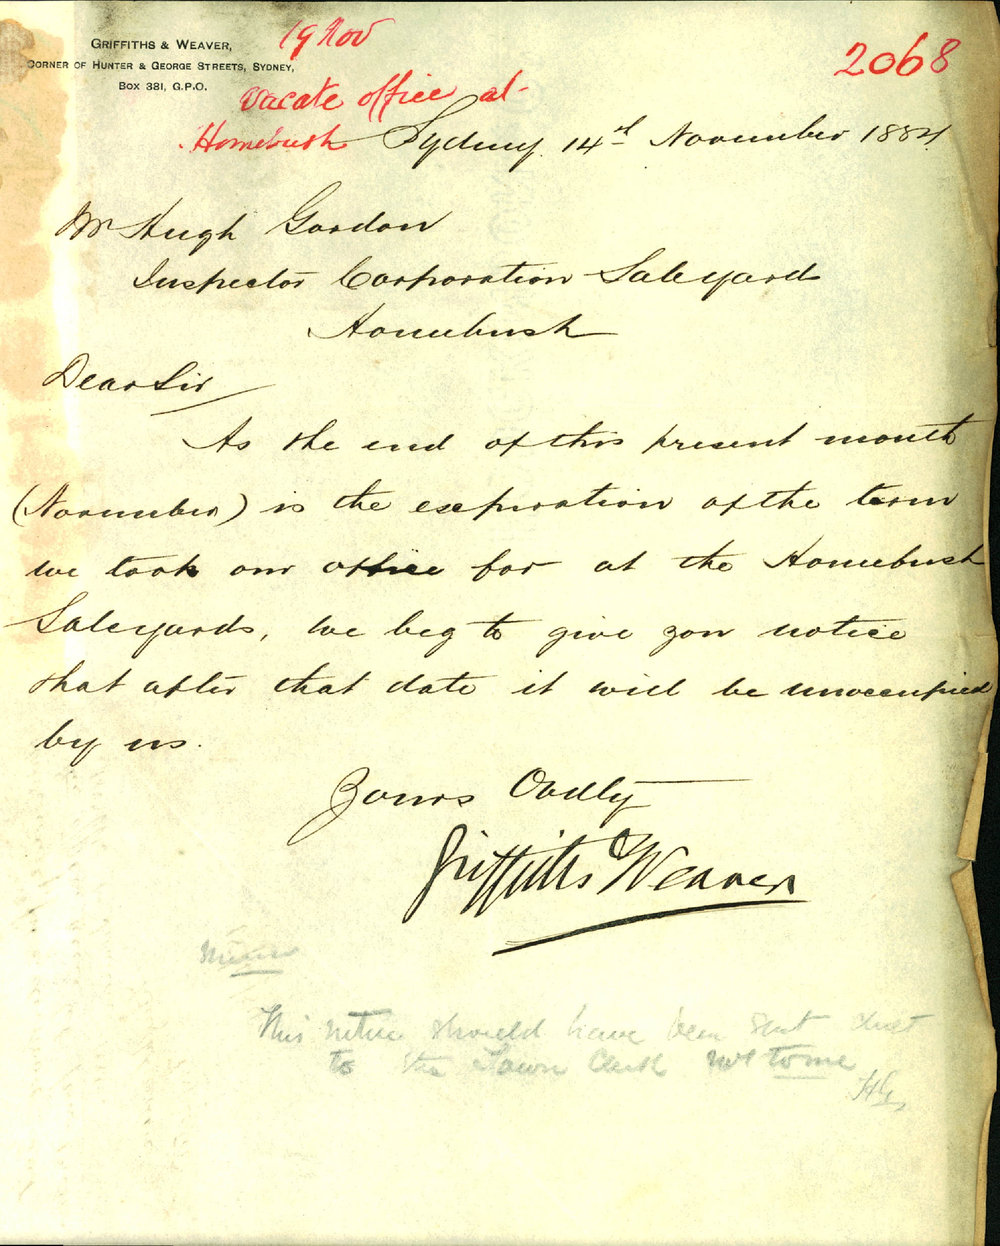 GRIFFITHS & WEAVER,
CORNER OF HUNTER & GEORGE STREETS, SYDNEY,
BOX 381, G.P.O.
19 Nov
2068
Vacate office at
Homebush
Sydney 14th November 1884
Mr Hugh Gordon
Inspector Corporation Saleyard
Homebush
Dear Sir
As the end of this present month
(November) is the expiration of the term
we took our office for at the Homebush
Saleyards, we beg to give you notice
that after that date it will be unoccupied
by us.
Yours Obdtly
Griffiths & Weaver
Memo
This notice should have been sent direct
to the Town Clerk not to me
HG